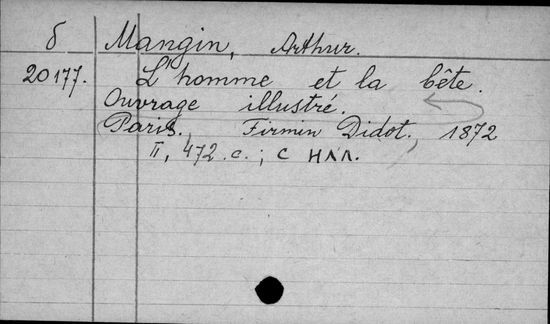 б Mangin, Arthur.
20177. L'homme et la bête.
Ouvrage illustré.
Paris., Firmin Didot., 1872
II, 472.c.; с илл.